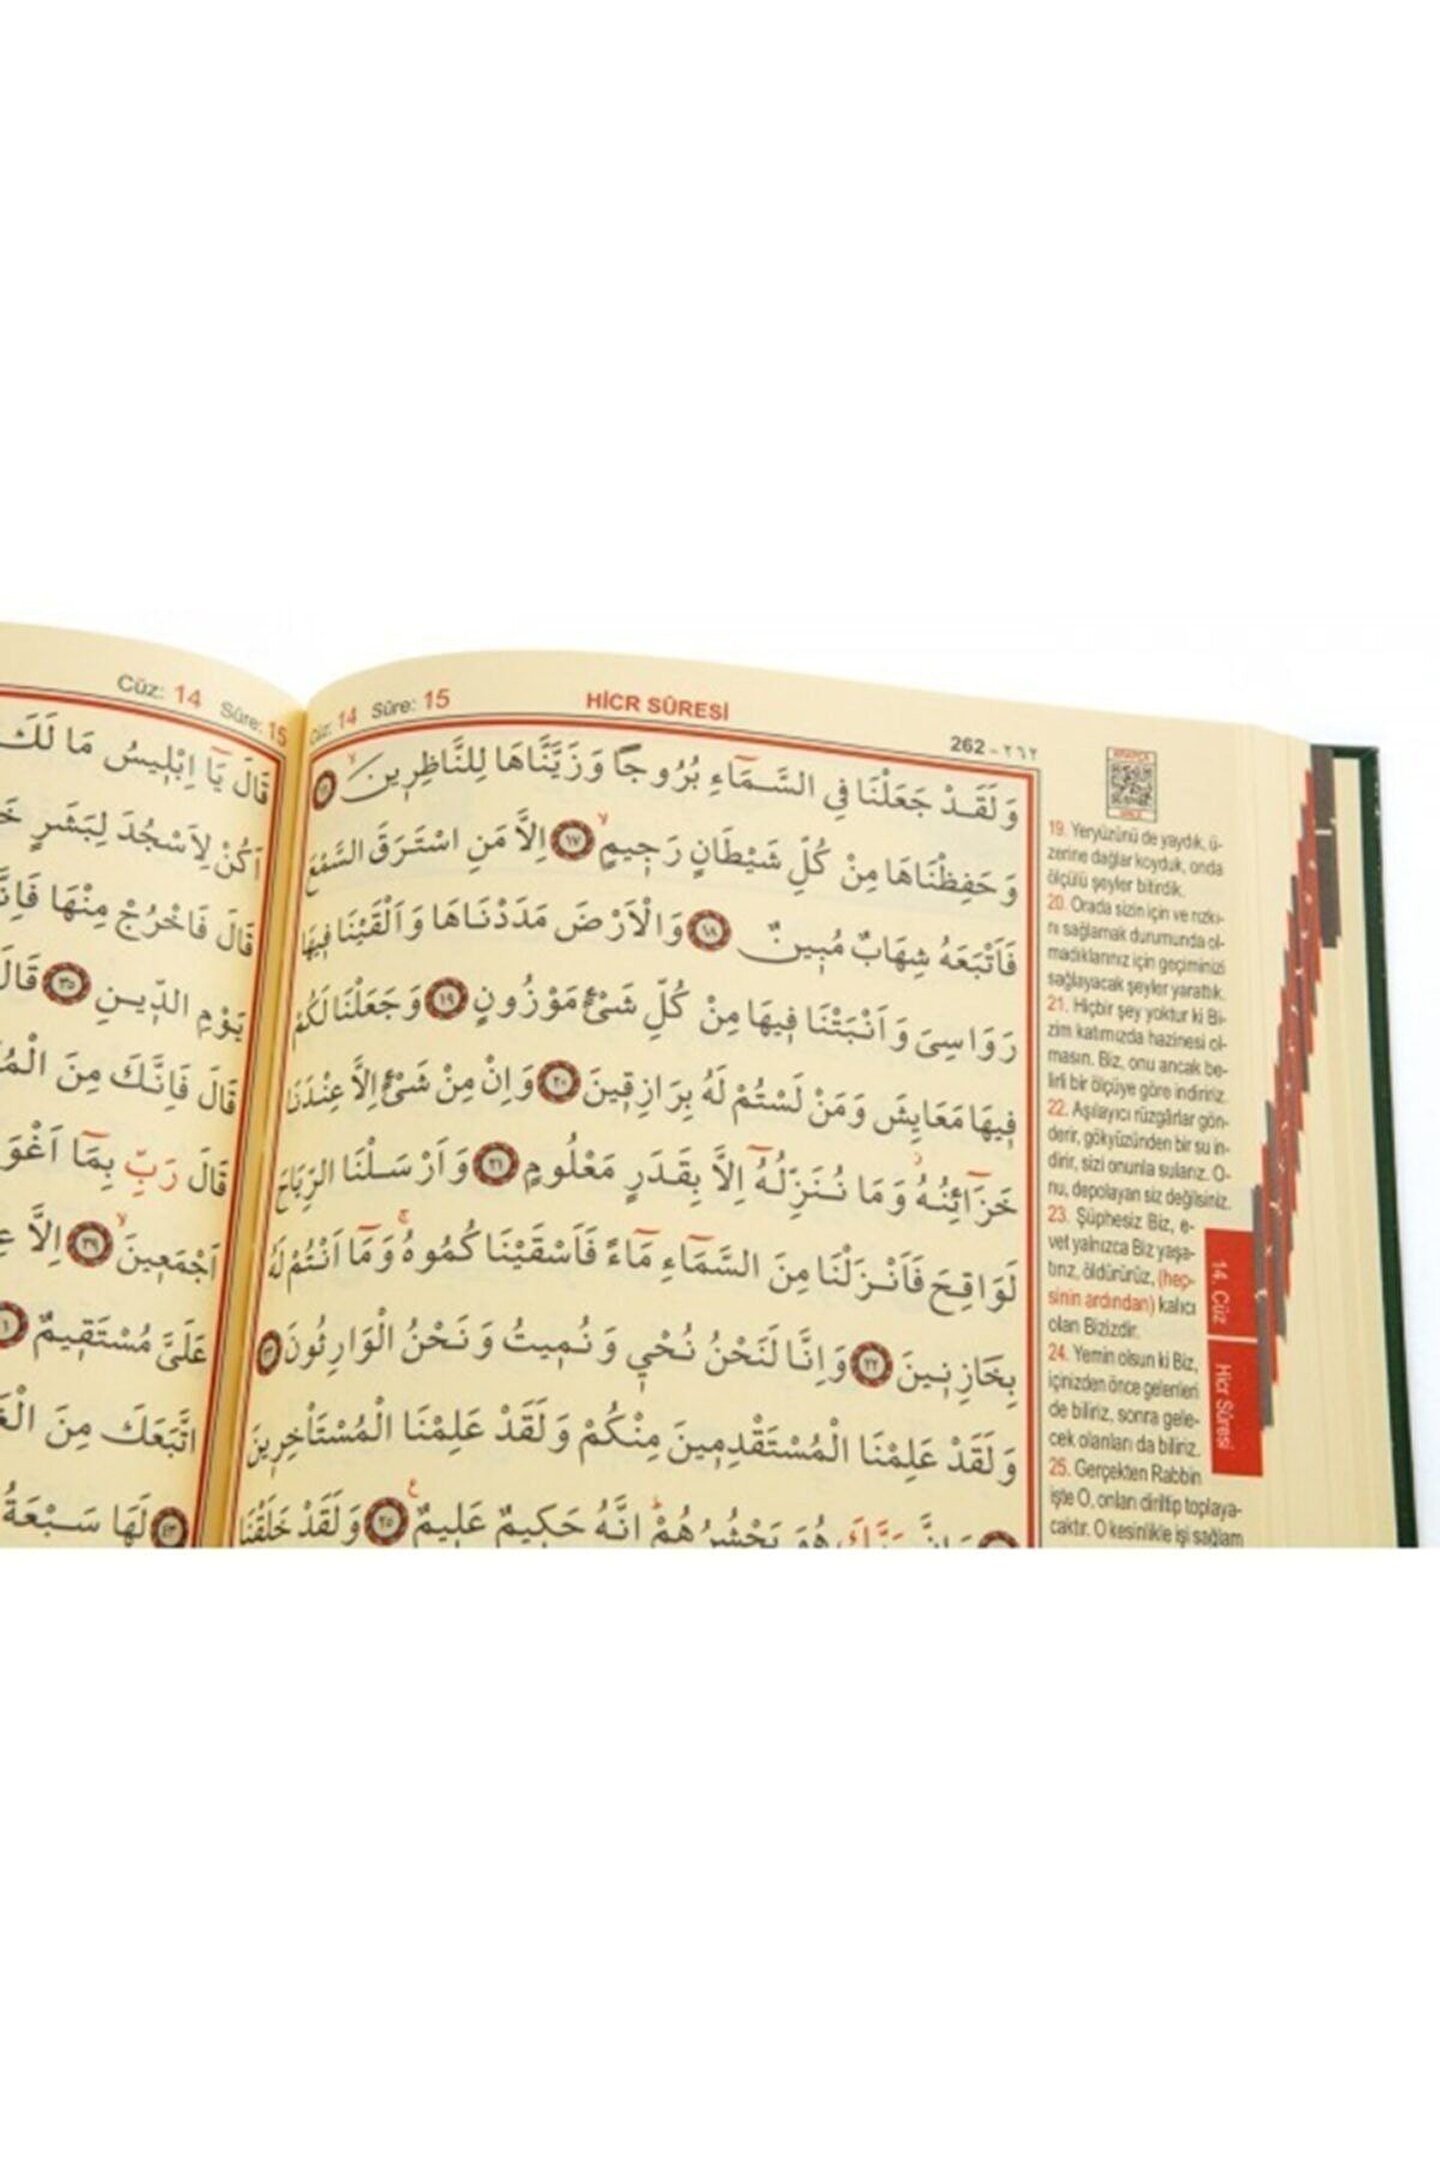 Cüz: 14 Sûre: 15
قَالَ يَٓا اِبْل۪يسُ مَا لَكَ
اَكُنْ لِاَسْجُدَ لِبَشَرٍ
قَالَ فَاخْرُجْ مِنْهَا
يَوْمِ الدّ۪ينِ ﴿٣٥﴾ قَالَ
قَالَ فَاِنَّكَ مِنَ
قَالَ رَبِّ بِمَٓا
اَجْمَع۪ينَۙ ﴿٣٩﴾ اِلَّا
عَلَيَّ مُسْتَق۪يمٌ
اتَّبَعَكَ مِنَ
﴿٤٣﴾ لَهَا سَبْعَةُ
Cüz: 14 Sûre: 15
HİCR SÛRESİ
262 - ٢٦٢
وَلَقَدْ جَعَلْنَا فِي السَّمَٓاءِ بُرُوجاً وَزَيَّنَّاهَا لِلنَّاظِر۪ينَۙ ﴿١٦﴾
وَحَفِظْنَاهَا مِنْ كُلِّ شَيْطَانٍ رَج۪يمٍۙ ﴿١٧﴾ اِلَّا مَنِ اسْتَرَقَ السَّمْعَ
فَاَتْبَعَهُ شِهَابٌ مُب۪ينٌ ﴿١٨﴾ وَالْاَرْضَ مَدَدْنَاهَا وَاَلْقَيْنَا ف۪يهَا
رَوَاسِيَ وَاَنْبَتْنَا ف۪يهَا مِنْ كُلِّ شَيْءٍ مَوْزُونٍ ﴿١٩﴾ وَجَعَلْنَا لَكُمْ
ف۪يهَا مَعَايِشَ وَمَنْ لَسْتُمْ لَهُ بِرَازِق۪ينَ ﴿٢٠﴾ وَاِنْ مِنْ شَيْءٍ اِلَّا عِنْدَنَا
خَزَٓائِنُهُۘ وَمَا نُنَزِّلُهُٓ اِلَّا بِقَدَرٍ مَعْلُومٍ ﴿٢١﴾ وَاَرْسَلْنَا الرِّيَاحَ
لَوَاقِحَ فَاَنْزَلْنَا مِنَ السَّمَٓاءِ مَٓاءً فَاَسْقَيْنَاكُمُوهُۚ وَمَٓا اَنْتُمْ لَهُ
بِخَازِن۪ينَ ﴿٢٢﴾ وَاِنَّا لَنَحْنُ نُحْي۪ وَنُم۪يتُ وَنَحْنُ الْوَارِثُونَ ﴿٢٣﴾
وَلَقَدْ عَلِمْنَا الْمُسْتَقْدِم۪ينَ مِنْكُمْ وَلَقَدْ عَلِمْنَا الْمُسْتَأْخِر۪ينَ
وَاِنَّ رَبَّكَ هُوَ يَحْشُرُهُمْۜ اِنَّهُ حَك۪يمٌ عَل۪يمٌ ﴿٢٥﴾ وَلَقَدْ خَلَقْنَا
19. Yeryüzünü de yaydık, ü-
zerine dağlar koyduk, onda
ölçülü şeyler bitirdik.
20. Orada sizin için ve rızkı-
nı sağlamak durumunda ol-
madıklarınız için geçiminizi
sağlayacak şeyler yarattık.
21. Hiçbir şey yoktur ki Bi-
zim katımızda hazinesi ol-
masın. Biz, onu ancak be-
lirli bir ölçüye göre indiririz.
22. Aşılayıcı rüzgârlar gön-
derir, gökyüzünden bir su in-
dirir, sizi onunla sularız. O-
nu, depolayan siz değilsiniz.
23. Şüphesiz Biz, e-
vet yalnızca Biz yaşa-
tırız, öldürürüz, (hep-
sinin ardından) kalıcı
olan Bizizdir.
24. Yemin olsun ki Biz,
içinizden önce gelenleri
de biliriz, sonra gele-
cek olanları da biliriz.
25. Gerçekten Rabbin
işte O, onları diriltip toplaya-
caktır. O kesinlikle işi sağlam
14. Cüz
Hicr Sûresi